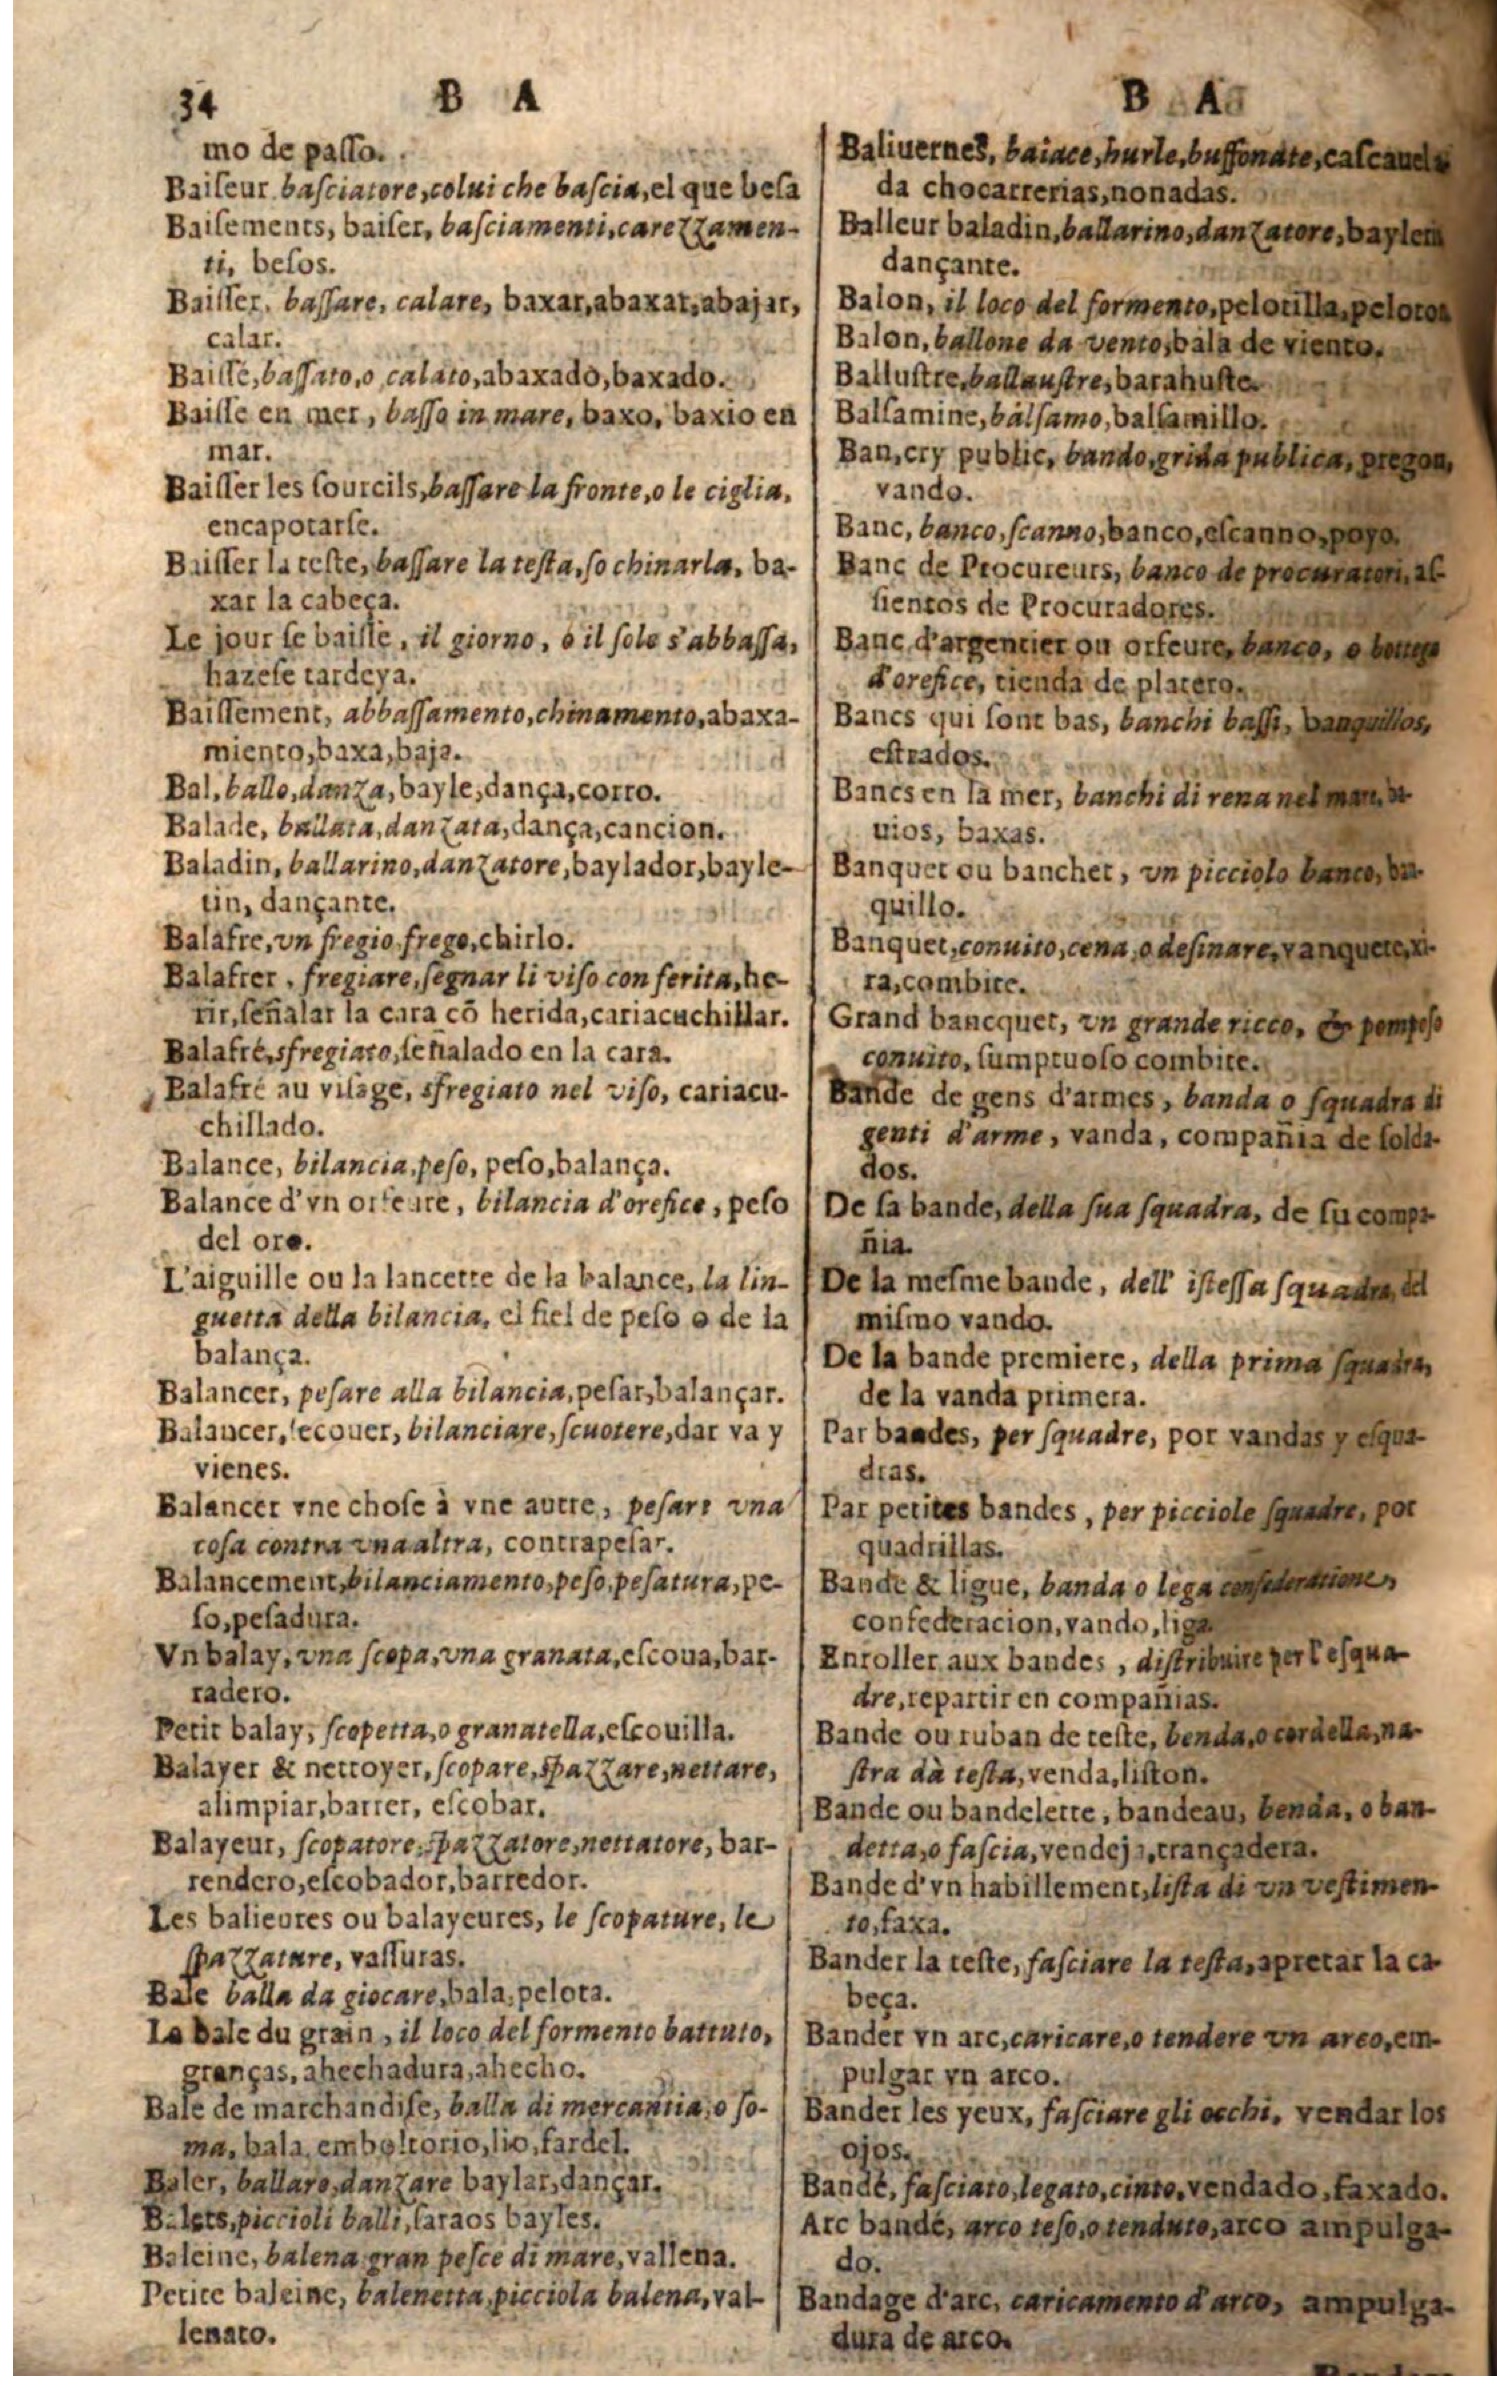 34 B A
mo de paſſo.
Baiſeur basciatore, colui che baſcia, el que beſa
Baiſements, baiſer, baſciamenti, carezzamen-
ti, beſos.
Baiſſer, baſſare, calare, baxar, abaxar, abajar,
calar.
Baiſſé, baſſato, o calato, abaxado, baxado.
Baiſſe en mer, baſſo in mare, baxo, baxio en
mar.
Baiſſer les ſourcils, baſſare la fronte, o le ciglia,
encapotarſe.
Baiſſer la teſte, baſſare la teſta, ſo chinarla, ba-
xar la cabeça.
Le jour ſe baiſſe, il giorno, o il ſole s'abbaſſa,
hazeſe tardeya.
Baiſſement, abbaſſamento, chinamento, abaxa-
miento, baxa, baja.
Bal, ballo, danza, bayle, dança, corro.
Balade, ballata, danzata, dança, cancion.
Baladin, ballarino, danzatore, baylador, bayle-
tin, dançante.
Balafre, vn fregio frego, chirlo.
Balafrer, fregiare, ſegnar li viſo con ferita, he-
rir, ſeñalar la cara cõ herida, cariacuchillar.
Balafré, sfregiato, ſeñalado en la cara.
Balafré au viſage, sfregiato nel viſo, cariacu-
chillado.
Balance, bilancia, peſo, peſo, balança.
Balance d'vn orfeure, bilancia d'orefice, peſo
del oro.
L'aiguille ou la lancette de la balance, la lin-
guetta della bilancia, el fiel de peſo o de la
balança.
Balancer, peſare alla bilancia, peſar, balançar.
Balancer, ſecouer, bilanciare, ſcuotere, dar va y
vienes.
Balancer vne choſe à vne autre, peſare vna
coſa contra vna altra, contrapeſar.
Balancement, bilanciamento, peſo, peſatura, pe-
ſo, peſadura.
Vn balay, vna ſcopa, vna granata, eſcoua, bar-
radero.
Petit balay, ſcopetta, o granatella, eſcouilla.
Balayer & nettoyer, ſcopare, ſpazzare, nettare,
alimpiar, barrer, eſcobar.
Balayeur, ſcopatore, ſpazzatore, nettatore, bar-
rendero, eſcobador, barredor.
Les balieures ou balayeures, le ſcopature, le
ſpazzature, vaſſuras.
Bale balla da giocare, bala, pelota.
La bale du grain, il loco del formento battuto,
granças, ahechadura, ahecho.
Bale de marchandiſe, balla di mercantia, o ſo-
ma, bala, emboltorio, lio, fardel.
Baler, ballare, danzare baylar, dançar.
Balets, piccioli balli, ſaraos bayles.
Baleine, balena gran peſce di mare, vallena.
Petite baleine, balenetta, picciola balena, val-
lenato.
B A
Baliuernes, baiace, burle, buffonate, caſcauel
da chocarrerias, nonadas.
Balleur baladin, ballarino, danzatore, bayletin
dançante.
Balon, il loco del formento, pelotilla, peloton
Balon, ballone da vento, bala de viento.
Balluſtre, ballauſtre, barahuſte.
Balſamine, bálſamo, balſamillo.
Ban, cry public, bando, grida publica, pregon,
vando.
Banc, banco, ſcanno, banco, eſcanno, poyo.
Banc de Procureurs, banco de procuratori, aſ-
ſientos de Procuradores.
Banc d'argentier ou orfeure, banco, o bottega
d'orefice, tienda de platero.
Bancs qui ſont bas, banchi baſſi, banquillos,
eſtrados.
Bancs en la mer, banchi di rena nel mare, ba-
uios, baxas.
Banquet ou banchet, vn picciolo banco, ban-
quillo.
Banquet, conuito, cena, o deſinare, vanquete, xi-
ra, combite.
Grand bancquet, vn grande ricco, & pompoſo
conuito, ſumptuoſo combite.
Bande de gens d'armes, banda o ſquadra di
genti d'arme, vanda, compañia de ſolda-
dos.
De ſa bande, della ſua ſquadra, de ſu compa-
ñia.
De la meſme bande, dell' iſteſſa ſquadra, del
miſmo vando.
De la bande premiere, della prima ſquadra,
de la vanda primera.
Par bandes, per ſquadre, por vandas y eſqua-
dras.
Par petites bandes, per picciole ſquadre, por
quadrillas.
Bande & ligue, banda o lega confederatione,
confederacion, vando, liga.
Enroller aux bandes, diſtribuire per l'eſqua-
dre, repartir en compañias.
Bande ou ruban de teſte, benda, o cordella, na-
ſtra dà teſta, venda, liſton.
Bande ou bandelette, bandeau, benda, o ban-
detta, o faſcia, vendeja, trançadera.
Bande d'vn habillement, liſta di vn veſtimen-
to, faxa.
Bander la teſte, faſciare la teſta, apretar la ca-
beça.
Bander vn arc, caricare, o tendere vn arco, em-
pulgar vn arco.
Bander les yeux, faſciare gli occhi, vendar los
ojos.
Bandé, faſciato, legato, cinto, vendado, faxado.
Arc bandé, arco teſo, o tenduto, arco ampulga-
do.
Bandage d'arc, caricamento d'arco, ampulga-
dura de arco.